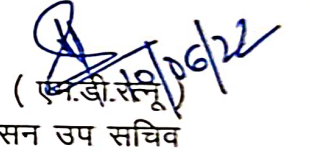 10/06/22
( एम.डी.रत्नू )
सन उप सचिव